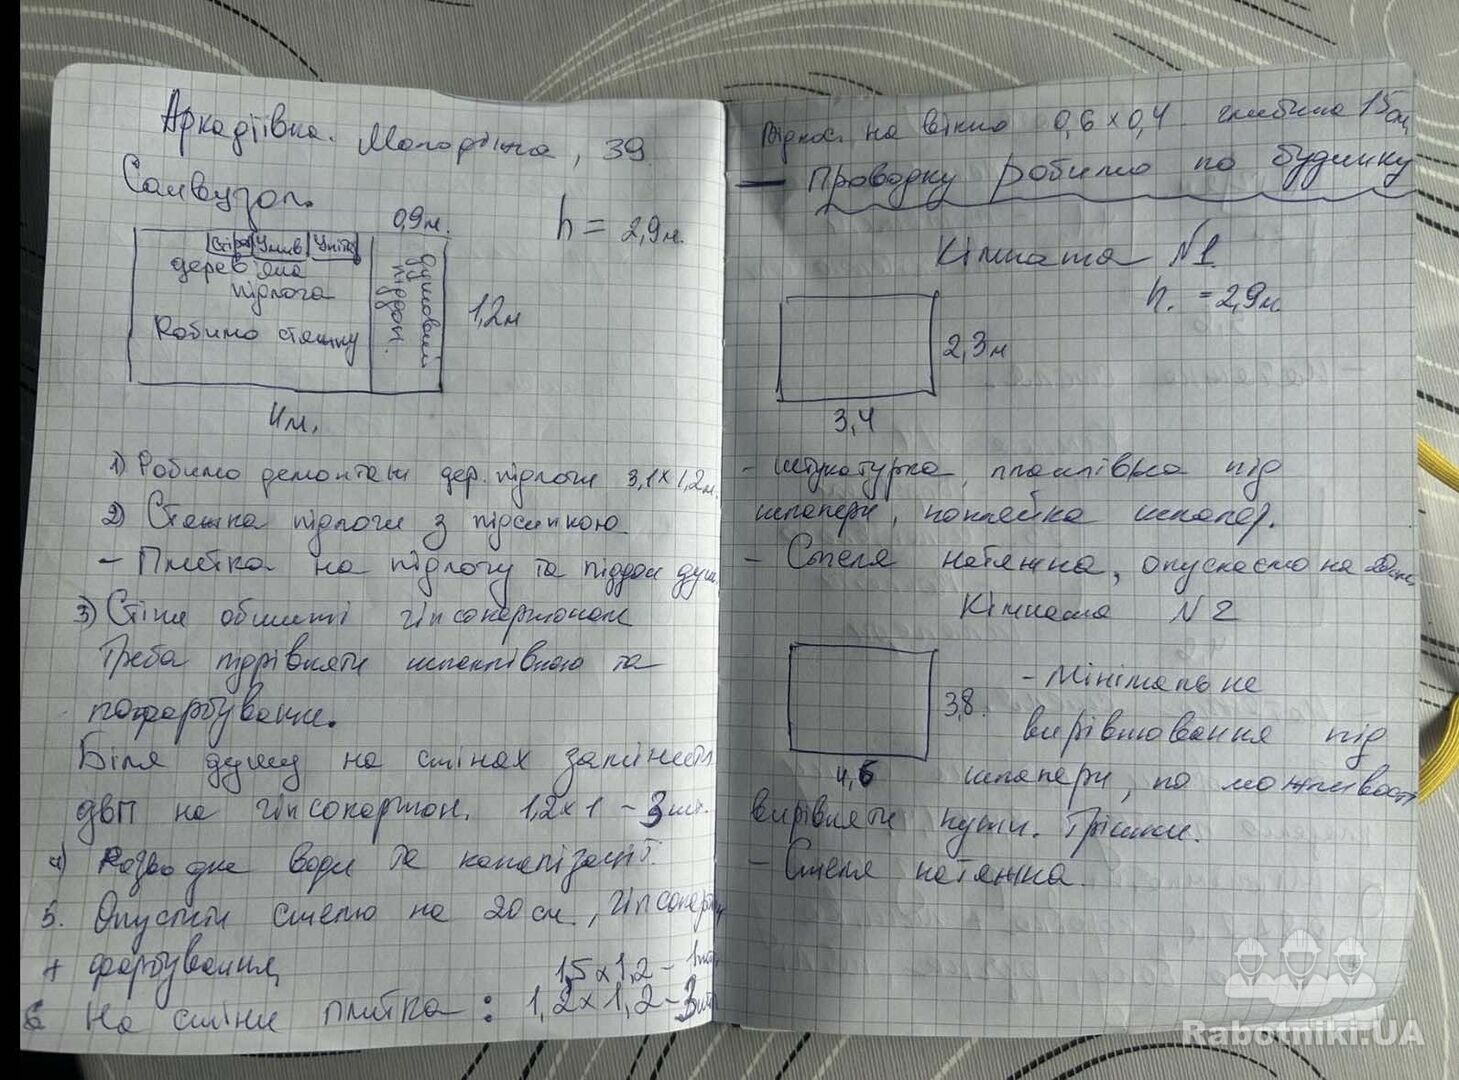 Аркадіївка. Молодіжна, 39
Санвузол.
0,9м.
h = 2,9м.
Стір Умив Уніта
дерев'яна
підлога
Робимо стяжку
душовий
піддон.
1,2м
4м.
1) Робимо демонтаж дер. підлоги 3,1х1,2м.
2) Стяжка підлоги з підсипкою
- Плитка на підлогу та піддон душ.
3) Стіни обшиті гіпсокартоном
Треба підрівняти шпаклівкою та
пофарбування.
Біля душу на стінах замінити
ДВП на гіпсокартон. 1,2х1 - 3шт.
4) Розводка води та каналізації.
5. Опустити стелю на 20см., гіпсокартон
+ фарбування
1,5х1,2 - 1шт
6 На стіни плитка: 1,2х1,2 - 3шт
Відкос. на вікно 0,6х0,4 глибина 15см
- Проводку робимо по будинку
Кімната №1
h. = 2,9м.
2,3м
3,4
- штукатурка, шпаклівка під
шпалери, поклейка шпалер.
- Стеля натяжна, опускаємо на
Кімната №2
- Мінімальне
3,8.
вирівнювання під
4,6
шпалери, по можливості
вирівняти кути. Трішки.
- Стеля натяжна.
Rabotniki.UA